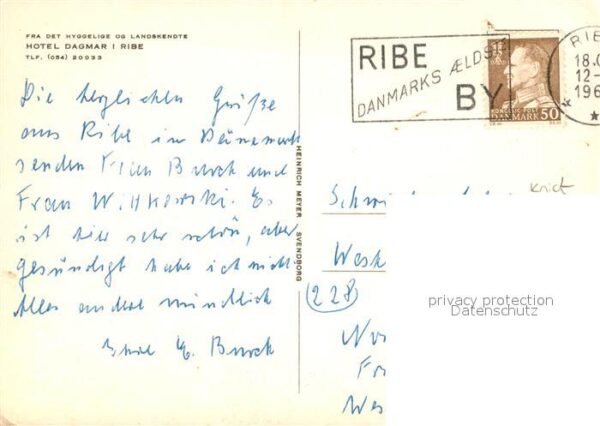 FRA DET HYGGELIGE OG LANDSKENDTE
HOTEL DAGMAR I RIBE
TLF. (054) 20033
Die herzlichen Grüße
aus Ribe in Dänemark
senden Frau Burck und
Frau Wittkowski. Es
ist hier sehr schön, aber
gesündigt habe ich nicht
Alles andre mündlich
Ihre E. Burck
HEINRICH MEYER SVENDBORG
RIBE
DANMARKS ÆLDSTE
BY
RIB
18.
12-
196
KONGELIG POST
DANMARK 50
Schw
Wesk
(228)
privacy protection
Datenschutz